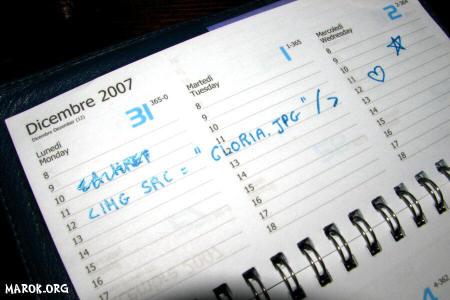 Dicembre 2007
Dicembre December (12)
Lunedì
Monday
31 365-0
8
9
10
11
12
13
14
15
16
17
Martedì
Tuesday
1 1-365
8
9
10
11
12
13
14
15
16
17
18
Mercoledì
Wednesday
2 2-364
8
9
10
11
12
13
14
15
16
17
18
<IMG SRC = "GLORIA.JPG" />
4-362
MAROK.ORG